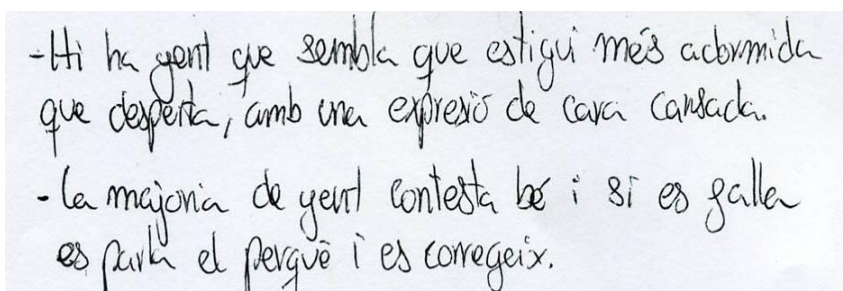 -Hi ha gent que sembla que estigui més adormida
que desperta, amb una expresió de cara cansada.
- La majoria de gent contesta bé i si es falla
es parla el perquè i es corregeix.